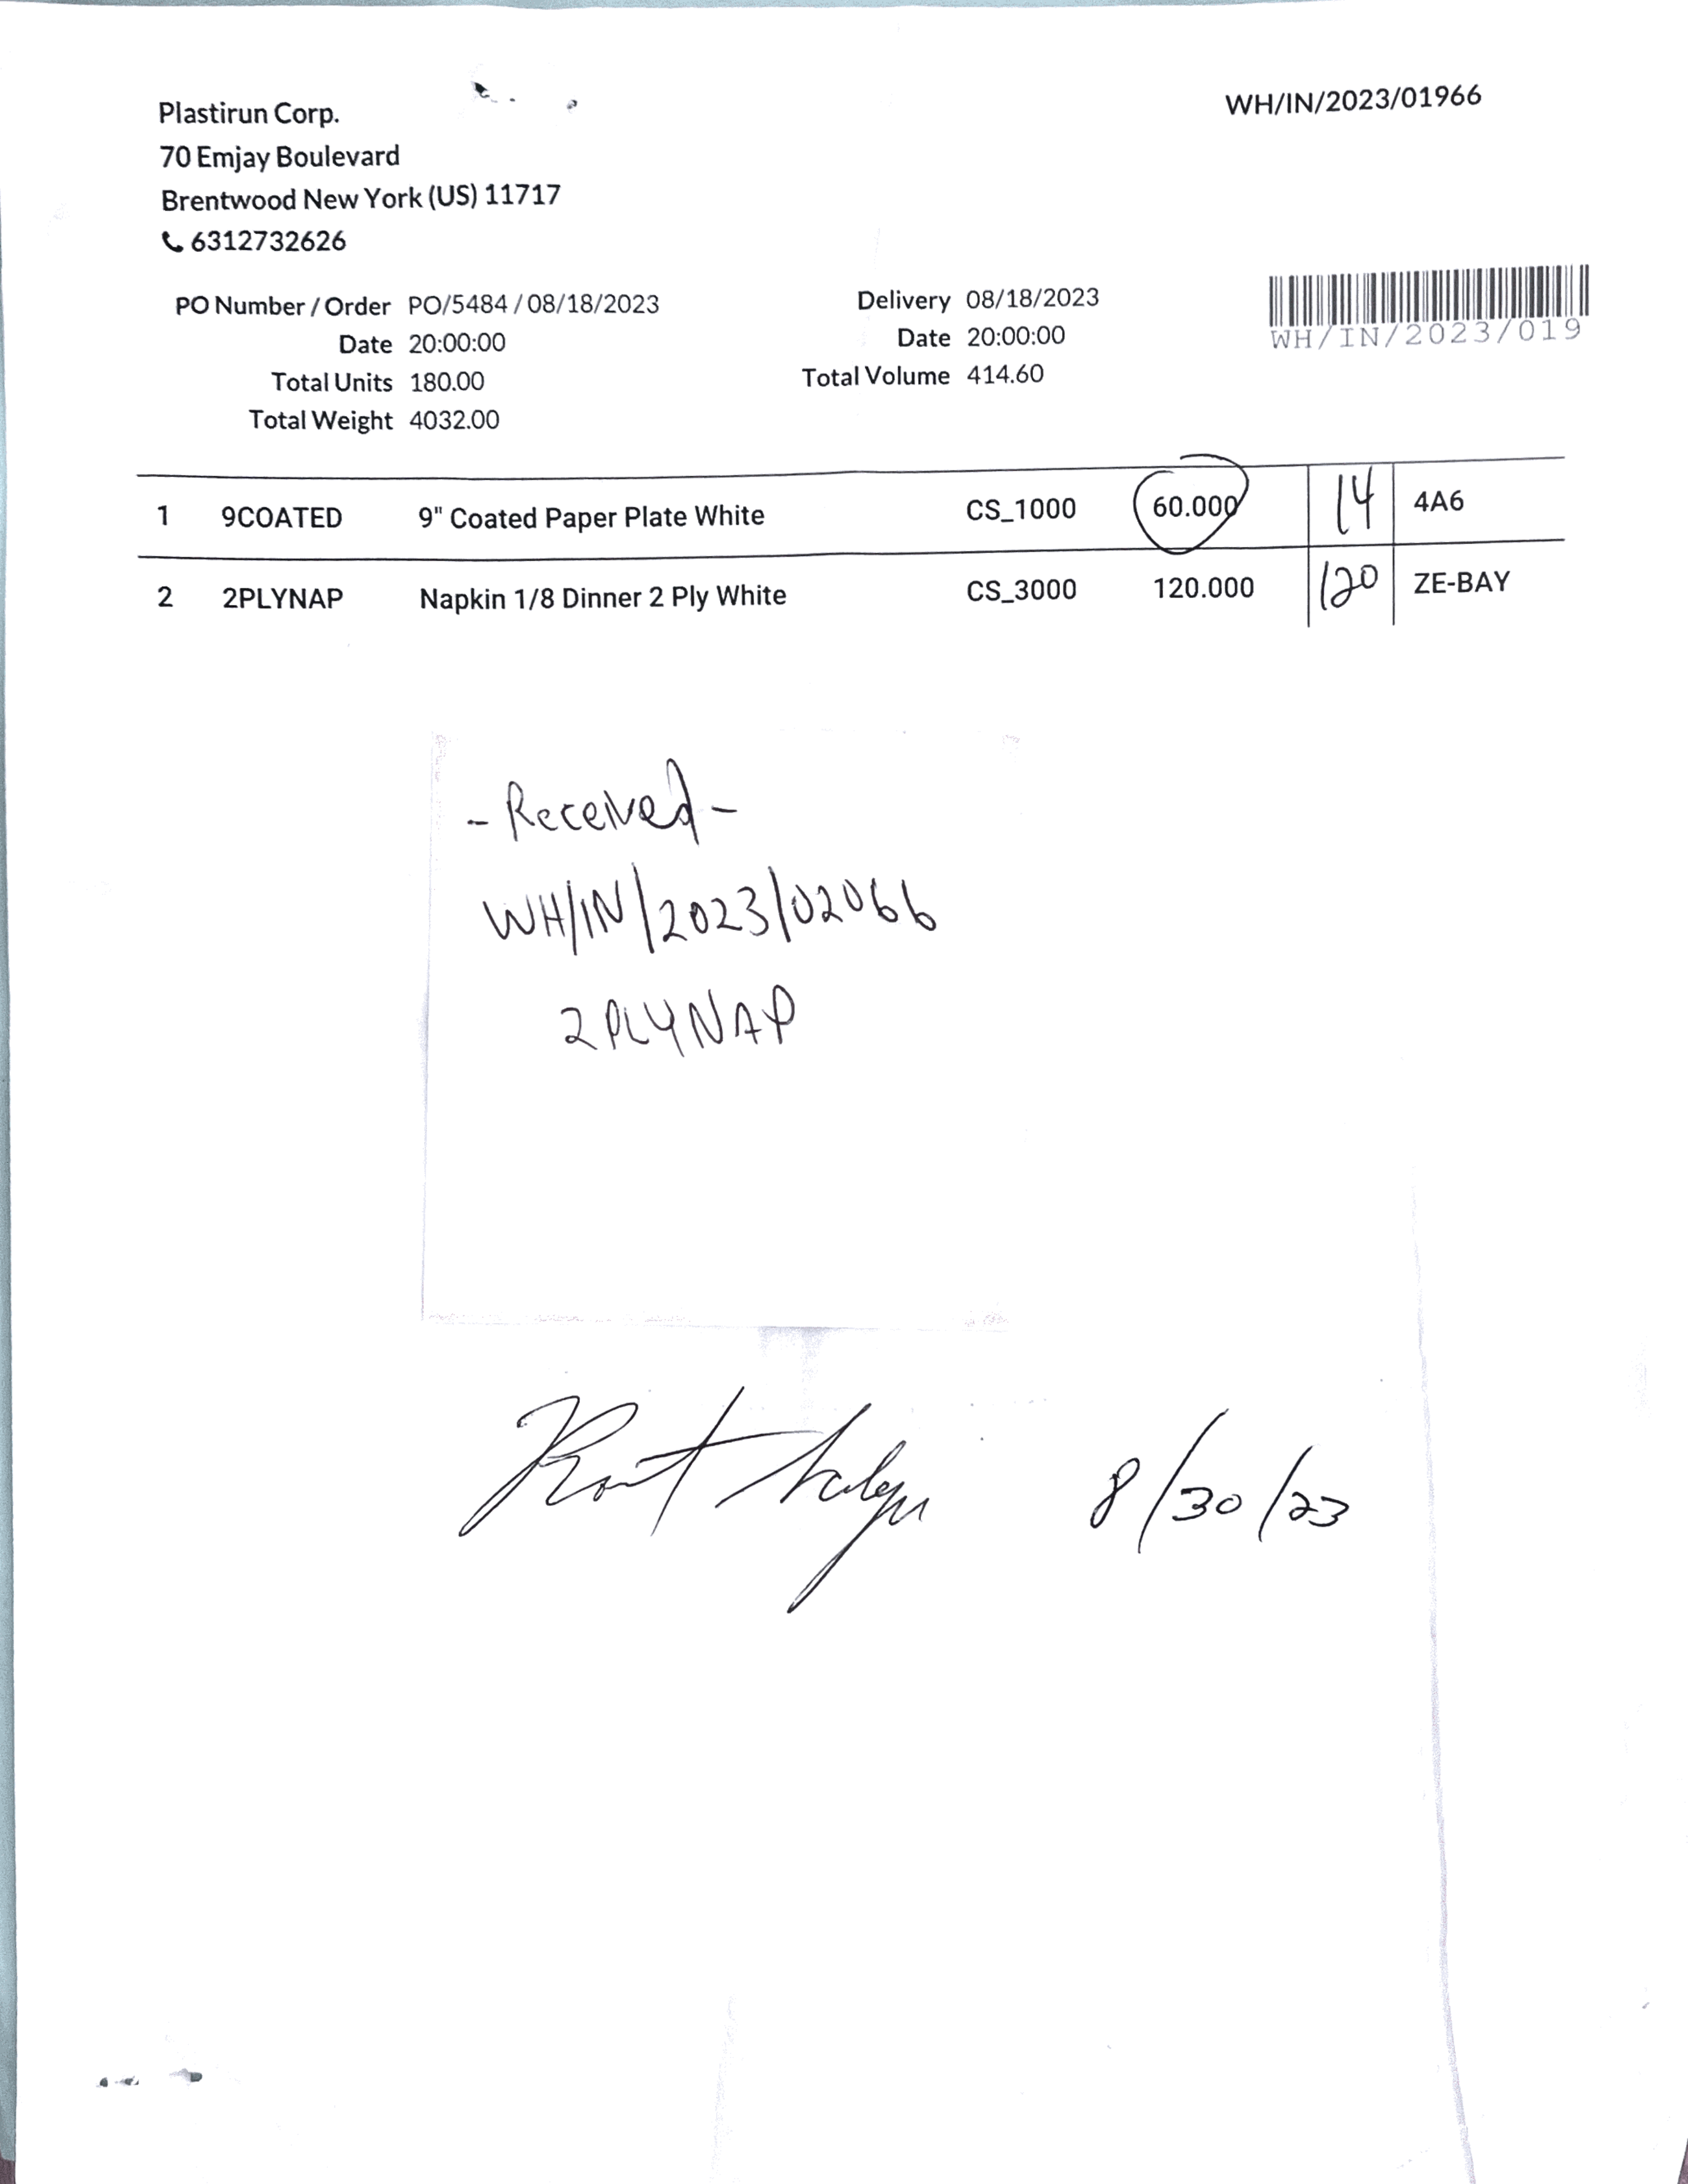 Plastirun Corp.
WH/IN/2023/01966
70 Emjay Boulevard
Brentwood New York (US) 11717
6312732626
PO Number / Order PO/5484 / 08/18/2023
Date 20:00:00
Total Units 180.00
Total Weight 4032.00
Delivery 08/18/2023
Date 20:00:00
Total Volume 414.60
WH/IN/2023/019
1 9COATED 9" Coated Paper Plate White CS_1000 60.000 14 4A6
2 2PLYNAP Napkin 1/8 Dinner 2 Ply White CS_3000 120.000 120 ZE-BAY
- Received -
WH/IN/2023/02066
2PLYNAP
8/30/23